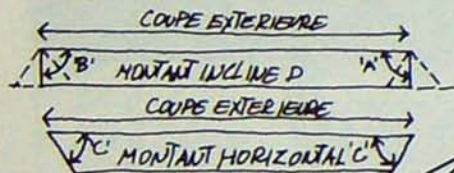 COUPE EXTERIEURE
'B' MONTANT INCLINE D 'A'
COUPE EXTERIEURE
'C' MONTANT HORIZONTAL 'C'